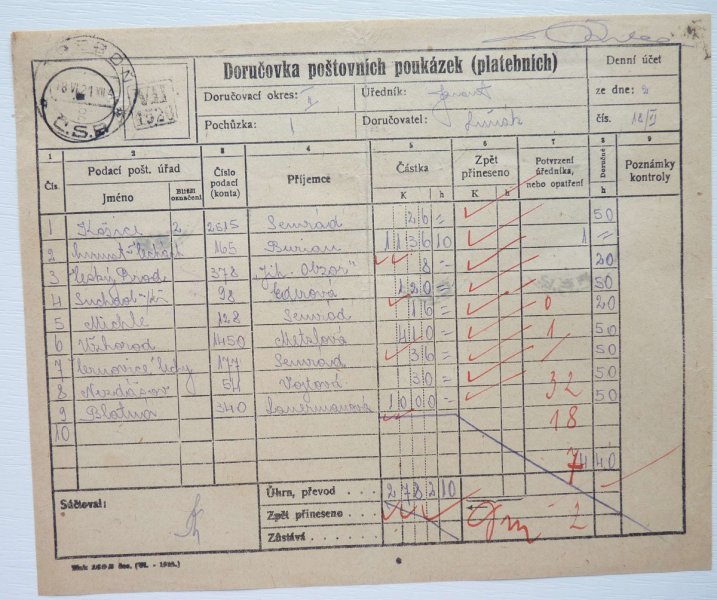 TŘEBOŇ
18 VI 21 XII
Č.S.P.
VII
1920
Doručovka poštovních poukázek (platebních)
Denní účet
Doručovací okres: I
Úředník:
ze dne: 2
Pochůzka: 1
Doručovatel:
čís. 12/II
1 2 3 4 5 6 7 8 9
Čís. Podací pošt. úřad Jméno Bližší označení Číslo podací (konta) Příjemce Částka K h Zpět přineseno K h Potvrzení úředníka, nebo opatření Doručné h Poznámky kontroly
1 Košice 2 2615 Semrád 26 = 50
2 165 Burian 1136 10 1 =
3 Český Brod 378 "Jih. Obzor" 8 = 20
4 Suchdol 98 Ederová 120 = 50
5 Michle 128 Semrád 16 = 0 20
6 Užhorod 1450 410 = 1 50
7 177 Semrád 36 = 50
8 54 Vojtová 30 = 32 50
9 Blatna 340 1000 = 18
10
7 4 40
Súčtoval:
Úhrn, převod . . . . 2782 10
Zpět přineseno . . . .
2
Zůstává . . . .